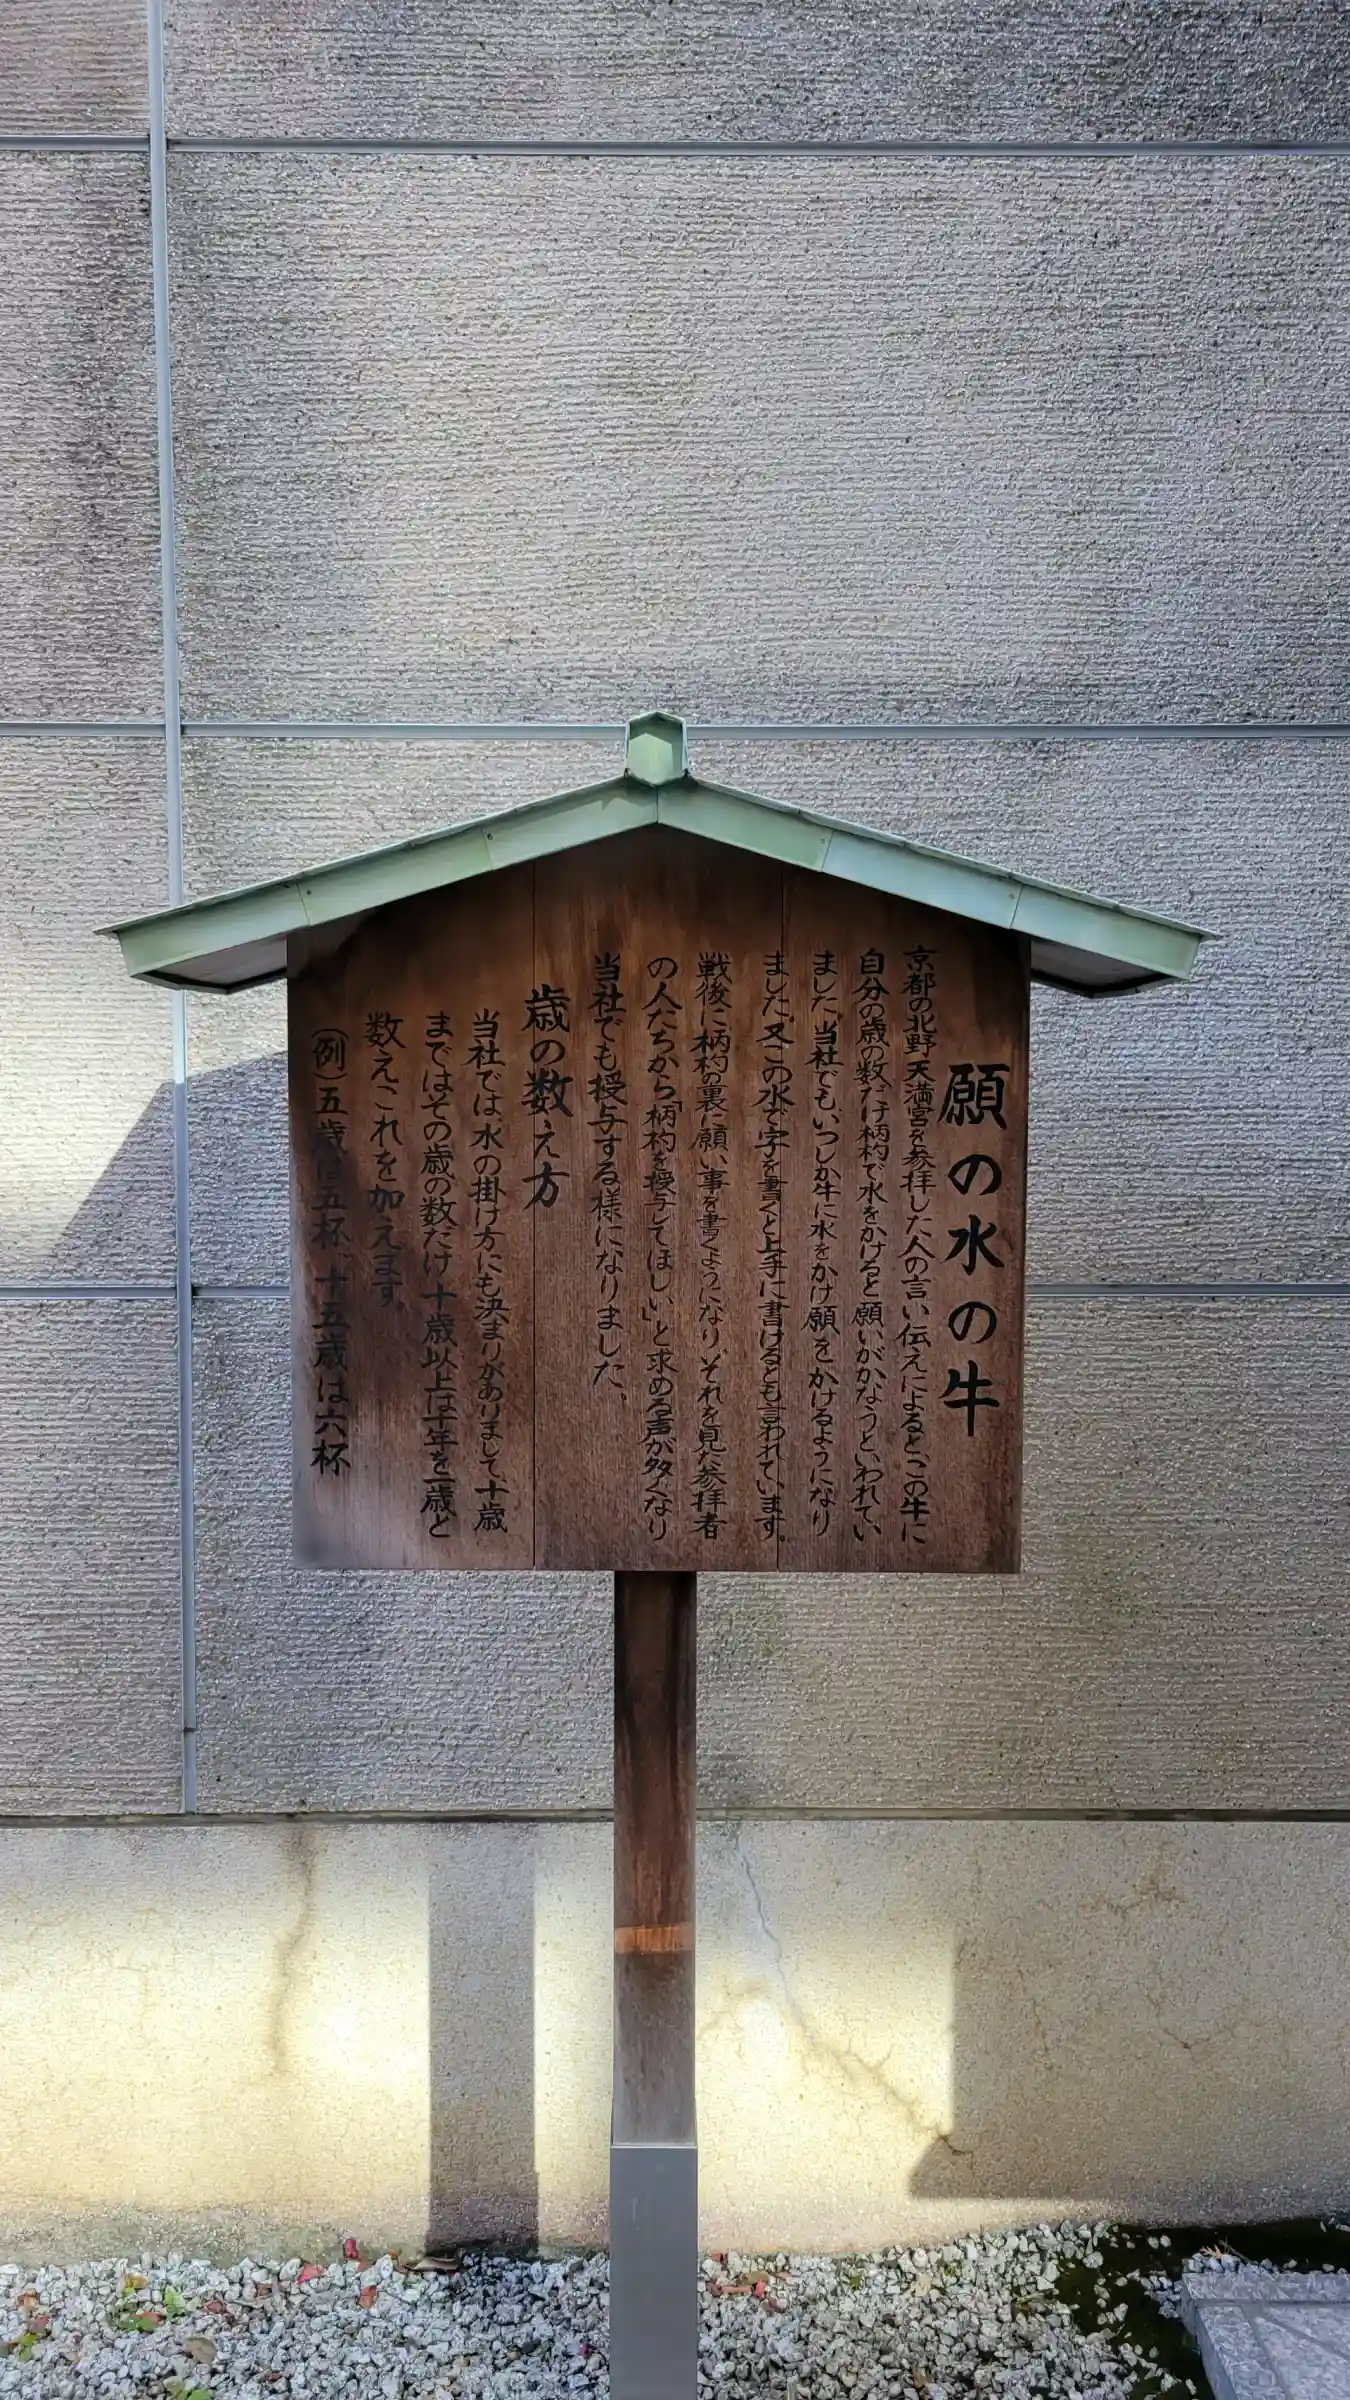 願の水の牛
京都の北野天満宮を参拝した人の言い伝えによると、この牛に
自分の歳の数だけ柄杓で水をかけると願いがかなうといわれてい
ました。当社でも、いつしか牛に水をかけ願をかけるようになり
ました。又この水で字を書くと上手に書けるとも言われています。
戦後に柄杓の裏に願い事を書くようになり、それを見た参拝者
の人たちから「柄杓を授与してほしい」と求める声が多くなり
当社でも授与する様になりました。
歳の数え方
当社では、水の掛け方にも決まりがありまして、十歳
まではその歳の数だけ十歳以上は十年を一歳と
数えこれを加えます。
（例）五歳は五杯、十五歳は六杯